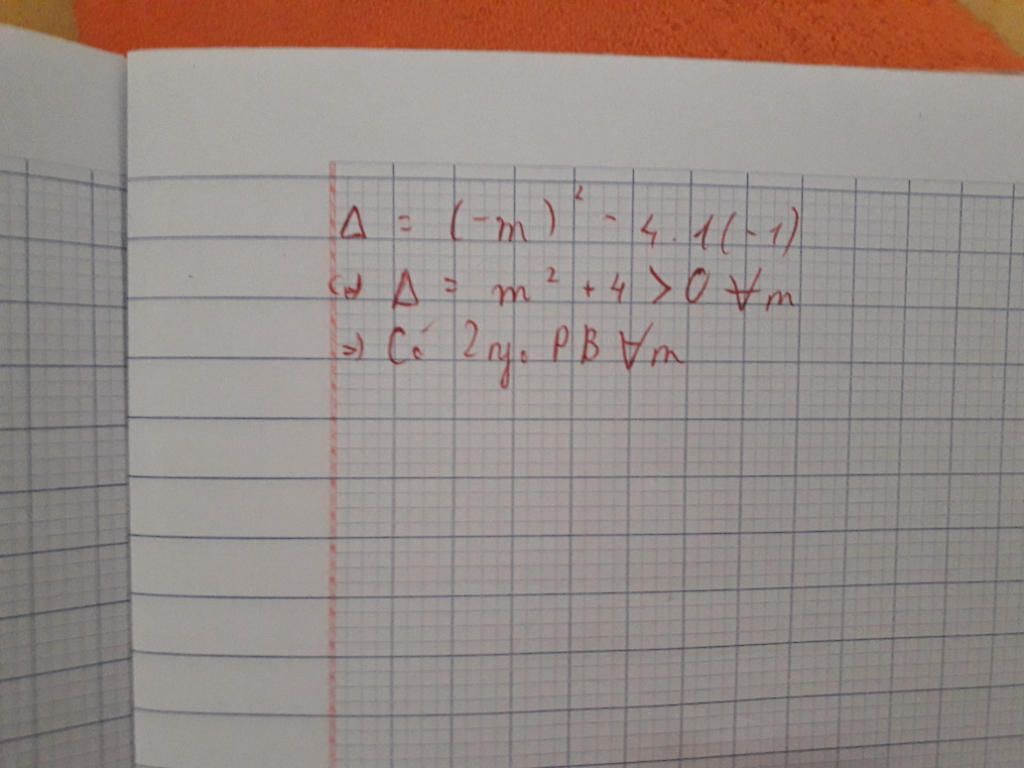 Δ = (-m)² - 4.1(-1)
(=) Δ = m² + 4 > 0 ∀m
=) Có 2 ng. PB ∀m